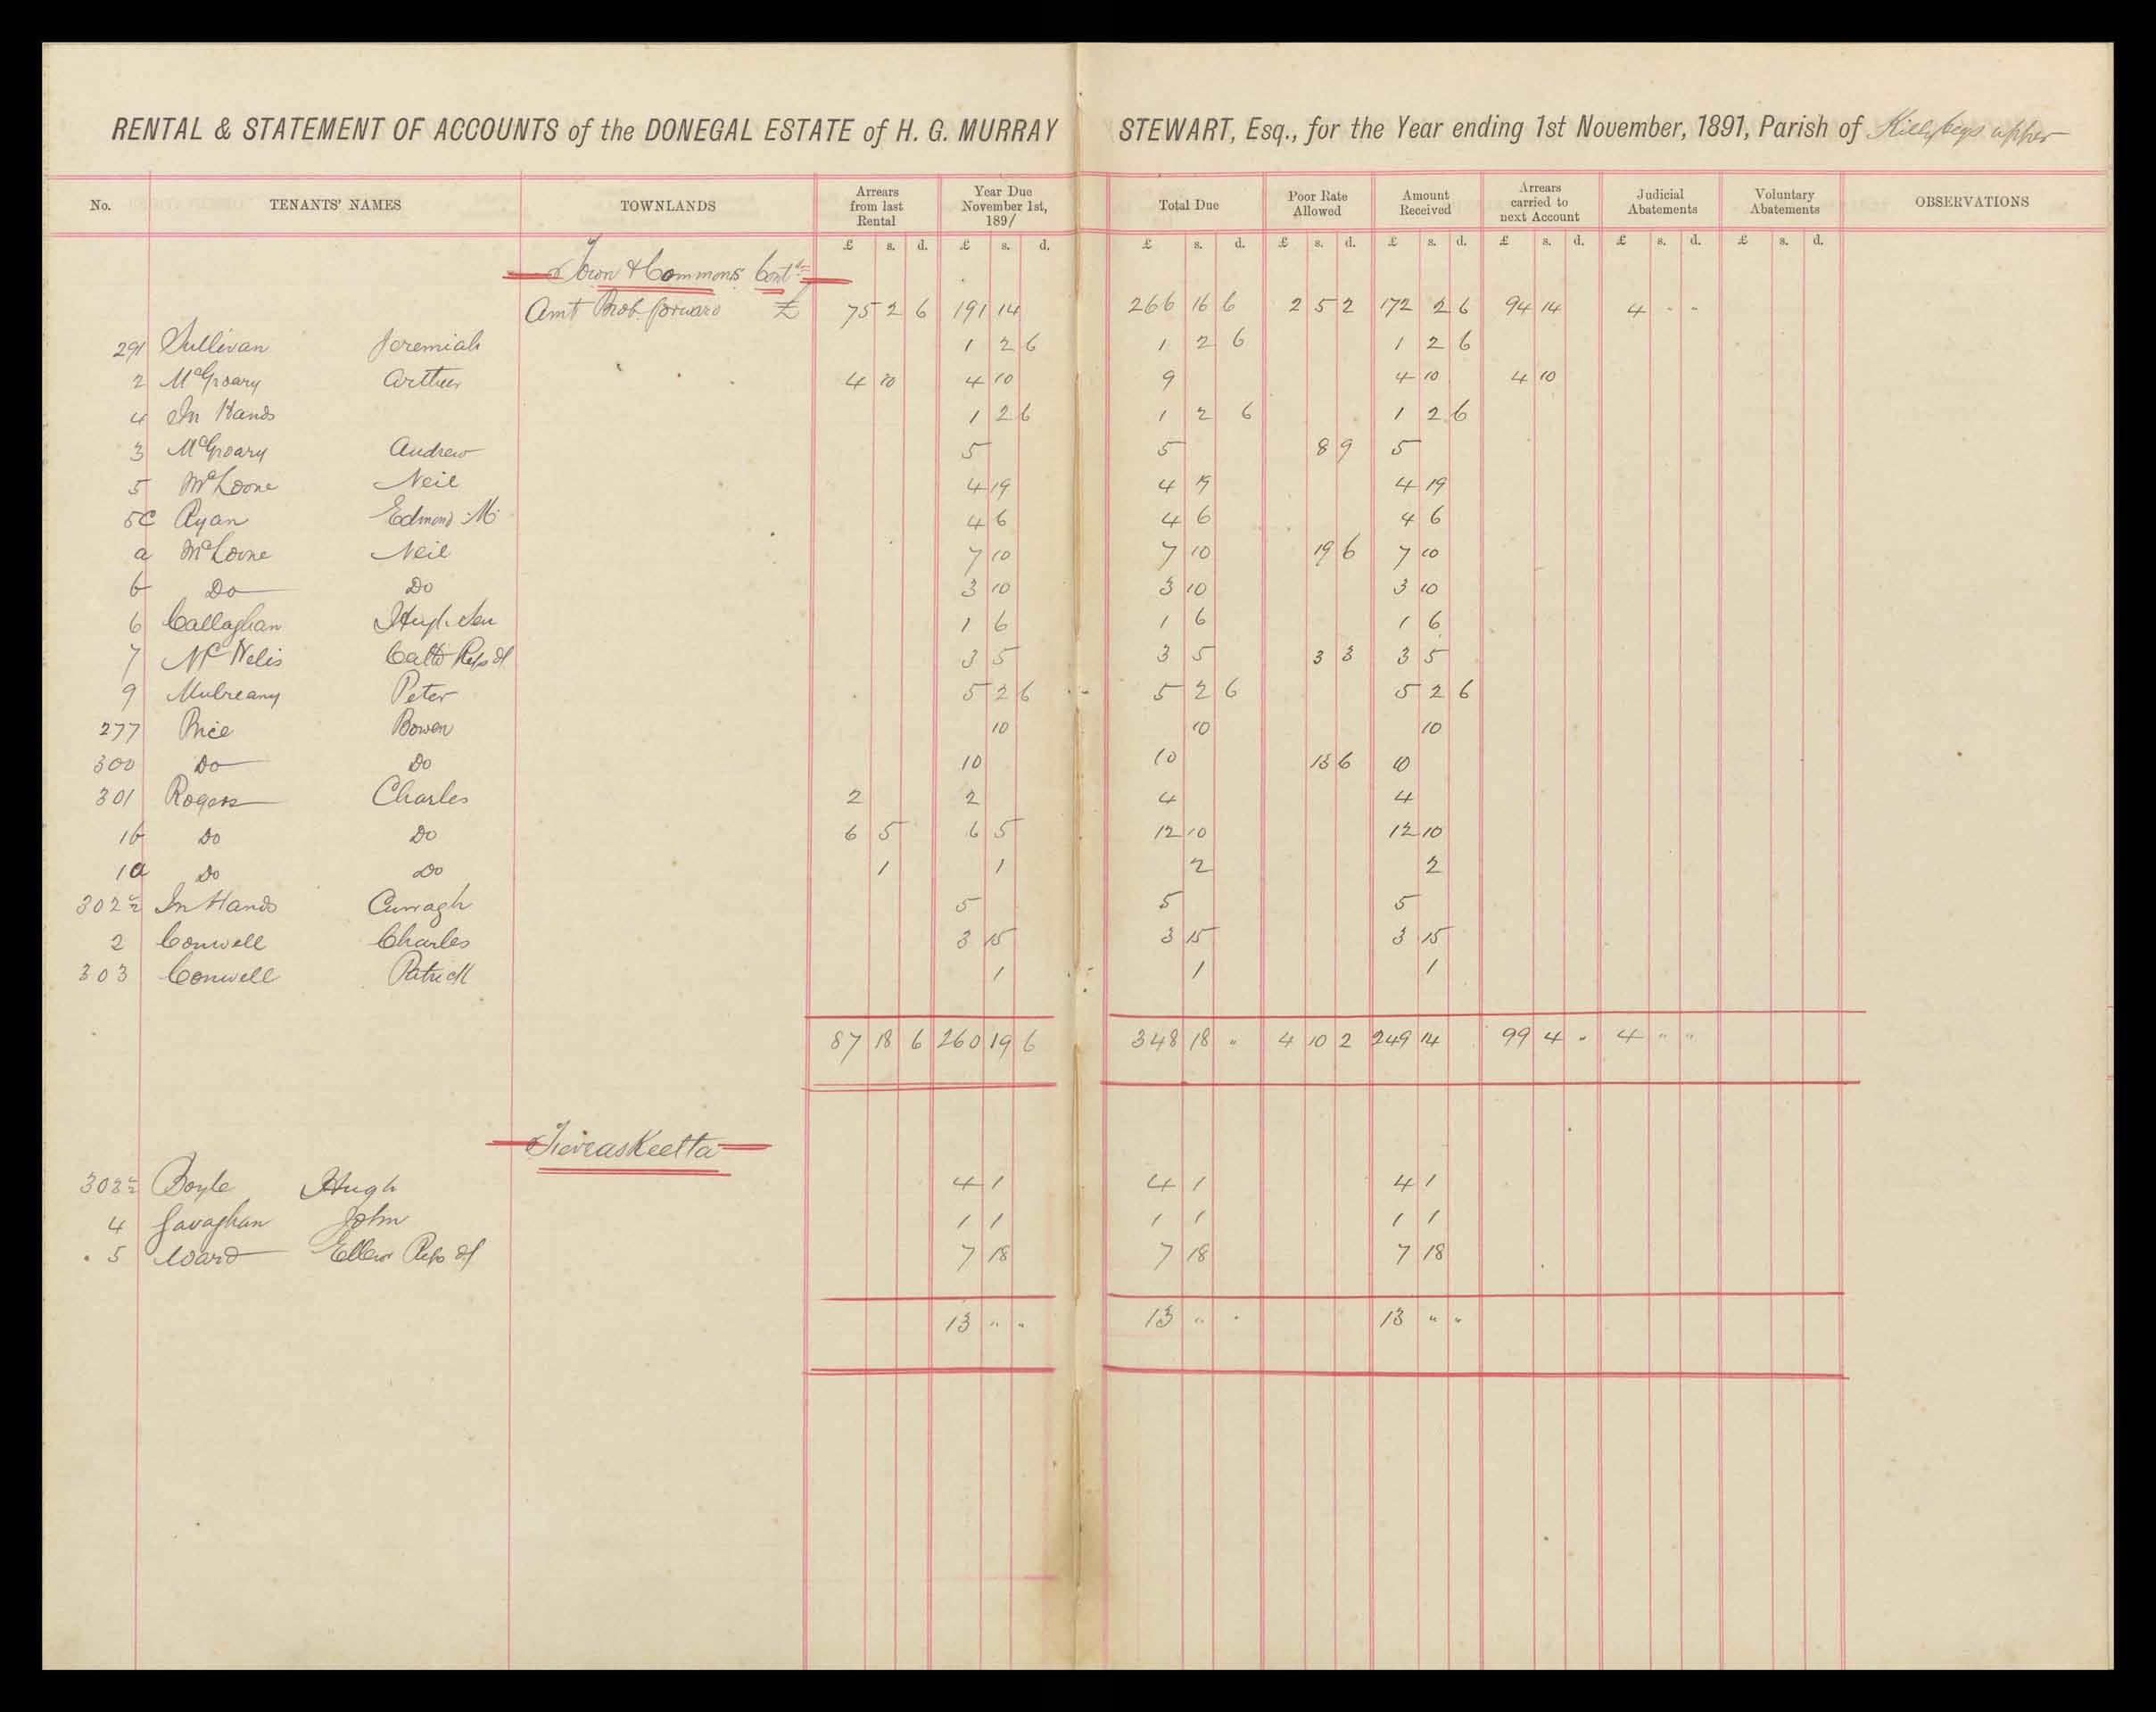 RENTAL & STATEMENT OF ACCOUNTS of the DONEGAL ESTATE of H. G. MURRAY STEWART, Esq., for the Year ending 1st November, 1891, Parish of Killybegs upper
No. TENANTS' NAMES TOWNLANDS Arrears from last Rental Year Due November 1st, 1891 Total Due Poor Rate Allowed Amount Received Arrears carried to next Account Judicial Abatements Voluntary Abatements OBSERVATIONS
£ s. d. £ s. d. £ s. d. £ s. d. £ s. d. £ s. d. £ s. d. £ s. d.
Town & Commons Contd
Amt Brot forward £ 75 2 6 191 14 266 16 6 2 5 2 172 2 6 94 14 4 " "
291 Sullivan Jeremiah 1 2 6 1 2 6 1 2 6
2 McGroary Arthur 4 10 4 10 9 4 10 4 10
4 In Hands 1 2 6 1 2 6 1 2 6
3 McGroary Andrew 5 5 8 9 5
5 McLoone Neil 4 19 4 19 4 19
5c Ryan Edmond M. 4 6 4 6 4 6
a McLoone Neil 7 10 7 10 19 6 7 10
b Do Do 3 10 3 10 3 10
6 Callaghan Hugh Sen 1 6 1 6 1 6
7 McNelis Catht Reps of 3 5 3 5 3 3 3 5
9 Mulreany Peter 5 2 6 5 2 6 5 2 6
277 Price Bowen 10 10 10
300 Do Do 10 10 13 6 10
301 Rogers Charles 2 2 4 4
1b Do Do 6 5 6 5 12 10 12 10
1a Do Do 1 1 2 2
302½ In Hands Curragh 5 5 5
2 Conwell Charles 3 15 3 15 3 15
303 Conwell Patrick 1 1 1
87 18 6 260 19 6 348 18 " 4 10 2 249 14 99 4 " 4 " "
Tieveaskeelta
303½ Boyle Hugh 4 1 4 1 4 1
4 Gavaghan John 1 1 1 1 1 1
5 Ward Ellenor Reps of 7 18 7 18 7 18
13 " " 13 " " 13 " "